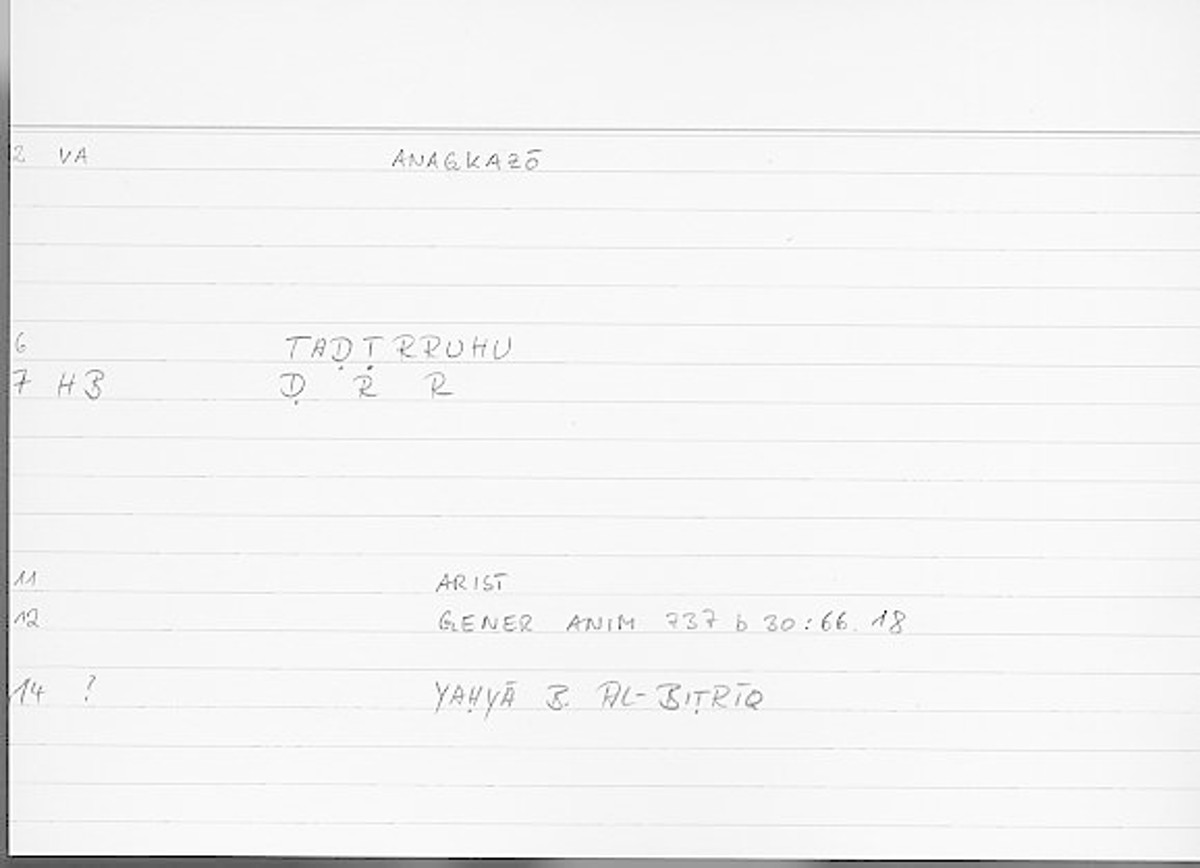 2 VA ANAGKAZŌ
6 TAḌṬRRUHU
7 HB Ḍ R R
11 ARIST
12 GENER ANIM 737 b 30:66.18
14 ? YAḤYĀ B. AL-BIṬRĪQ